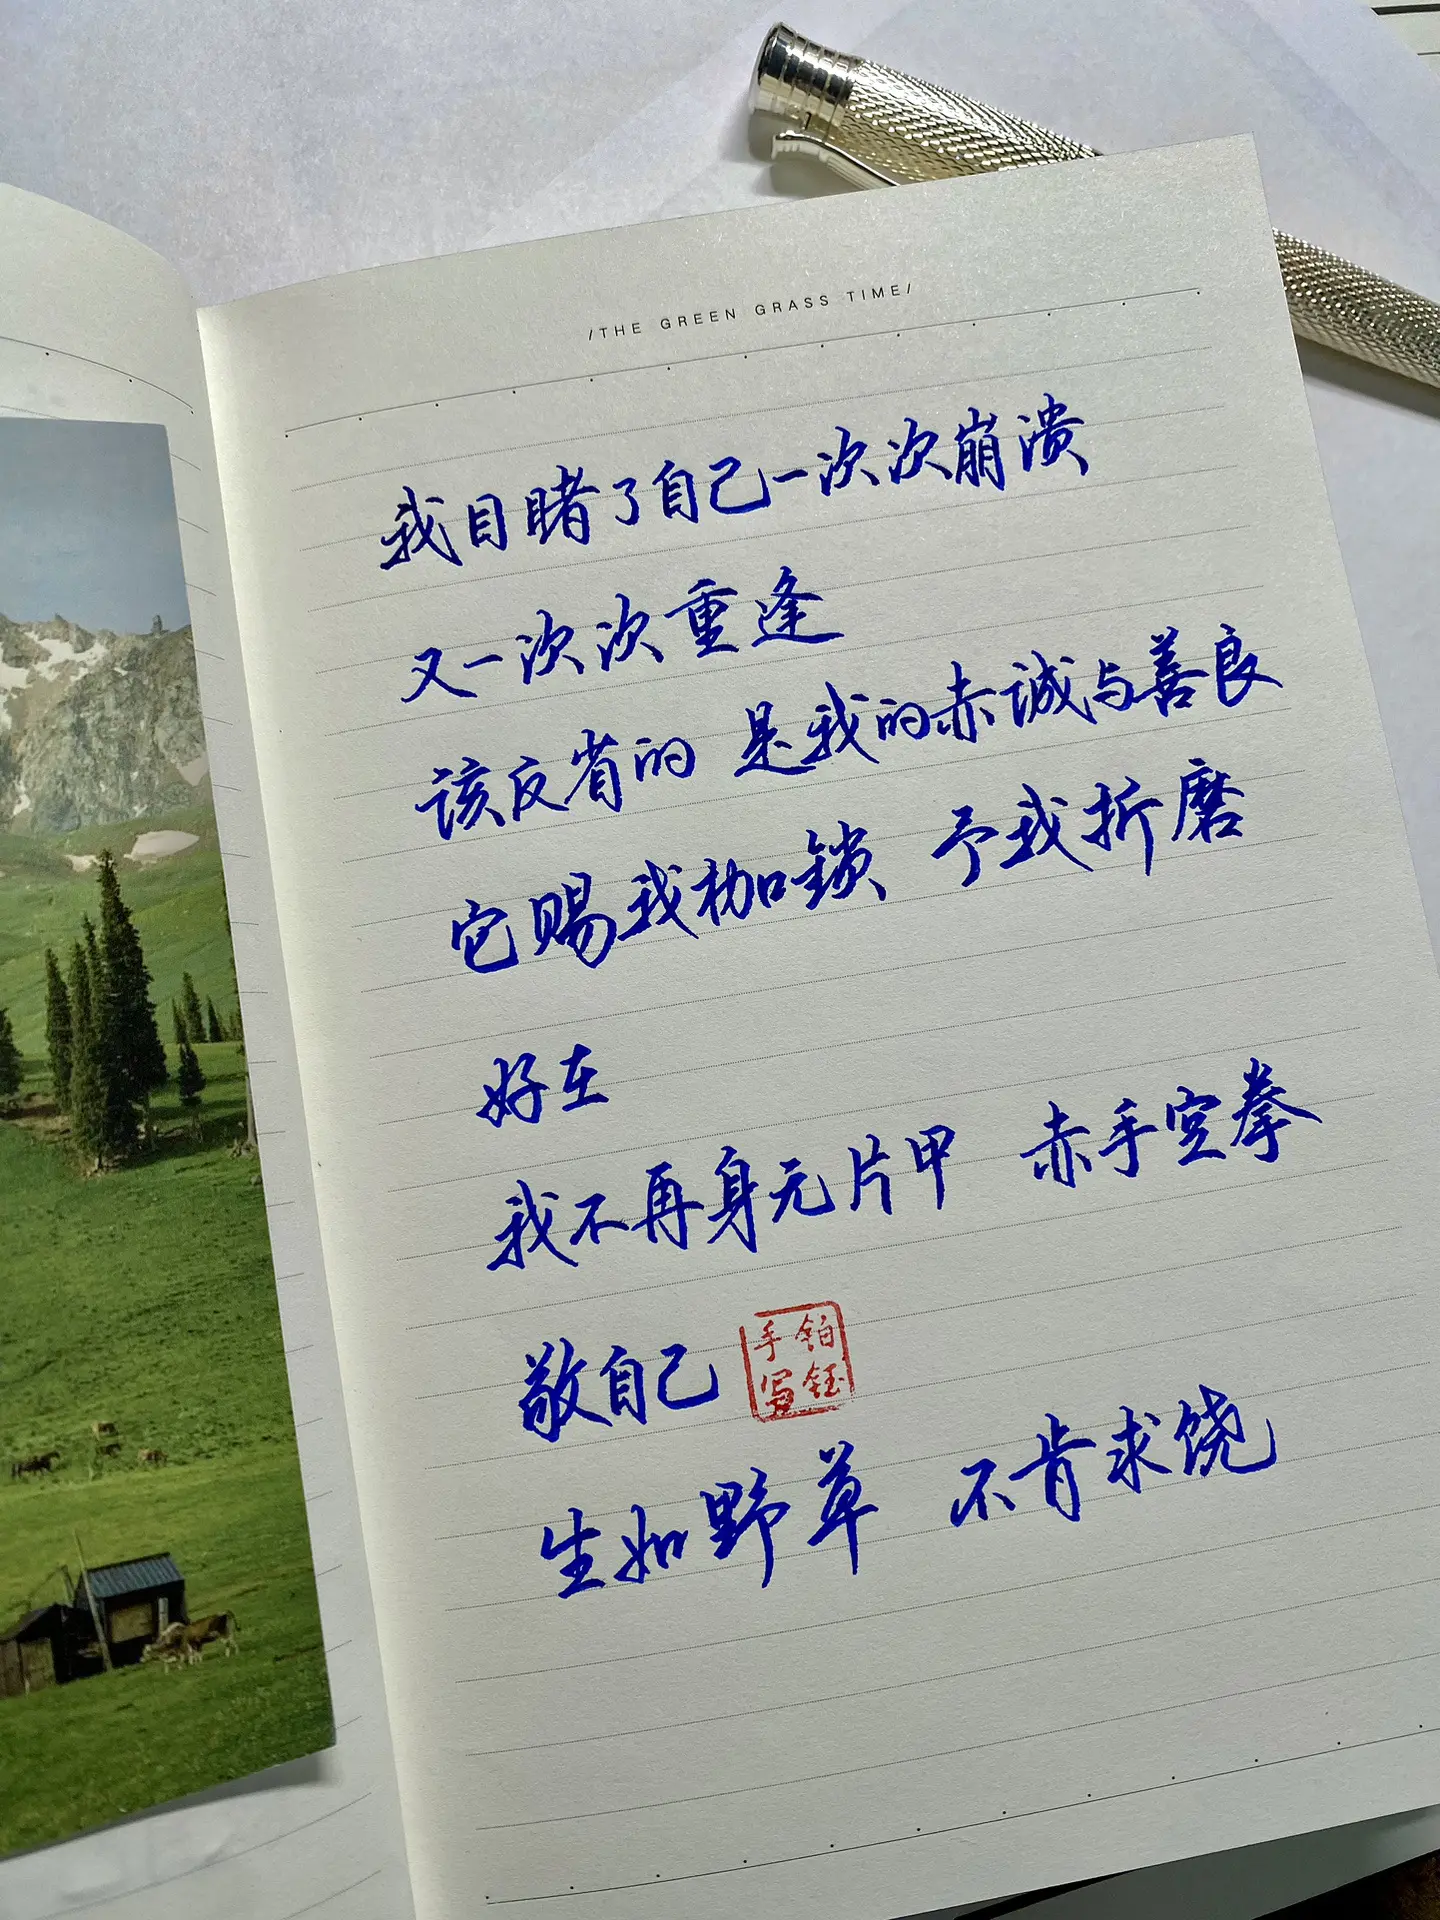 /THE GREEN GRASS TIME/
我目睹了自己一次次崩溃
又一次次重逢
该反省的 是我的赤诚与善良
它赐我枷锁 予我折磨
好在
我不再身无片甲 赤手空拳
敬自己
铂钰
手写
生如野草 不肯求饶